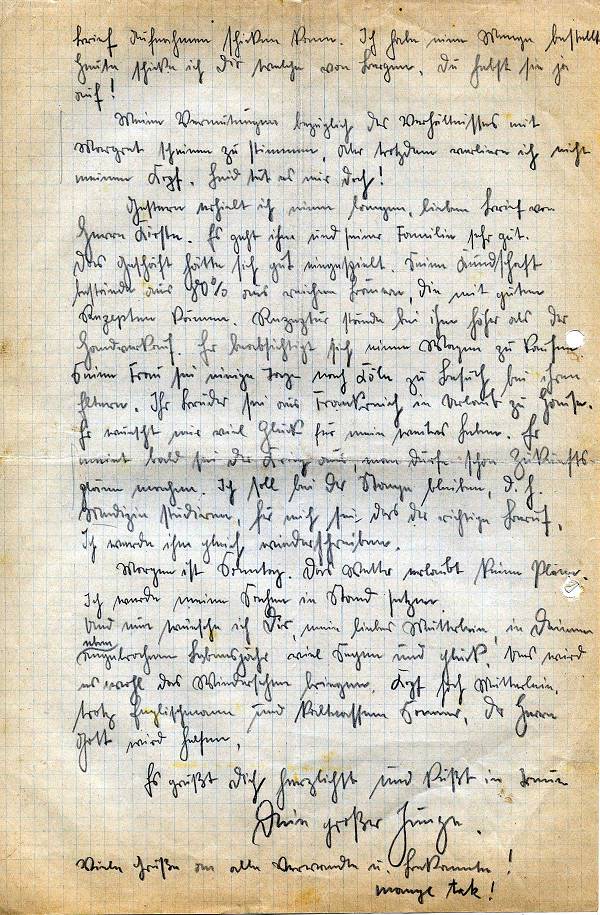 brief Aufnahmen schicken kann. Ich habe eine Menge bestellt.
Heute schicke ich Dir welche von Bergen. Du hebst sie ja
auf!
Meine Vermutungen bezüglich des Verhältnisses mit
Margret scheinen zu stimmen, aber trotzdem verliere ich nicht
meinen Kopf. Leid tut es mir doch!
Gestern erhielt ich einen langen, lieben Brief von
Herrn Kirste. Es geht ihm und seiner Familie sehr gut.
Das Geschäft hätte sich gut eingespielt. Seine Kundschaft
bestände aus 80% aus reichen Bauern, die mit guten
Rezepten kämen. Rezeptur stände bei ihm höher als der
Handverkauf. Er beabsichtigt sich einen Wagen zu kaufen.
Seine Frau sei einige Tage nach Köln zu Besuch bei ihren
Eltern. Ihr Bruder sei aus Frankreich in Urlaub zu Hause.
Er wünscht mir viel Glück für mein weiteres Leben. Er
meint bald sei der Krieg aus, man dürfe schon Zukunfts-
pläne machen. Ich soll bei der Stange bleiben, d. h.
Medizin studieren, für mich sei das der richtige Beruf.
Ich werde ihm gleich wiederschreiben.
Morgen ist Sonntag. Das Wetter erlaubt keine Pläne.
Ich werde meine Sachen in Stand setzen.
Und nun wünsche ich Dir, mein liebes Mütterlein, in Deinem
neuen
angebrochenen Lebensjahre viel Segen und Glück. Uns wird
es wohl das Wiedersehen bringen. Kopf hoch Mütterlein,
trotz Engländern und Sommer, der Herr
Gott wird helfen.
Es grüßt Dich herzlichst und küßt in Treue
Dein großer Junge.
Viele Grüße an alle Verwandte u. Bekannte!
mange tak!